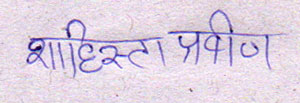 शाहिस्ता प्रवीण